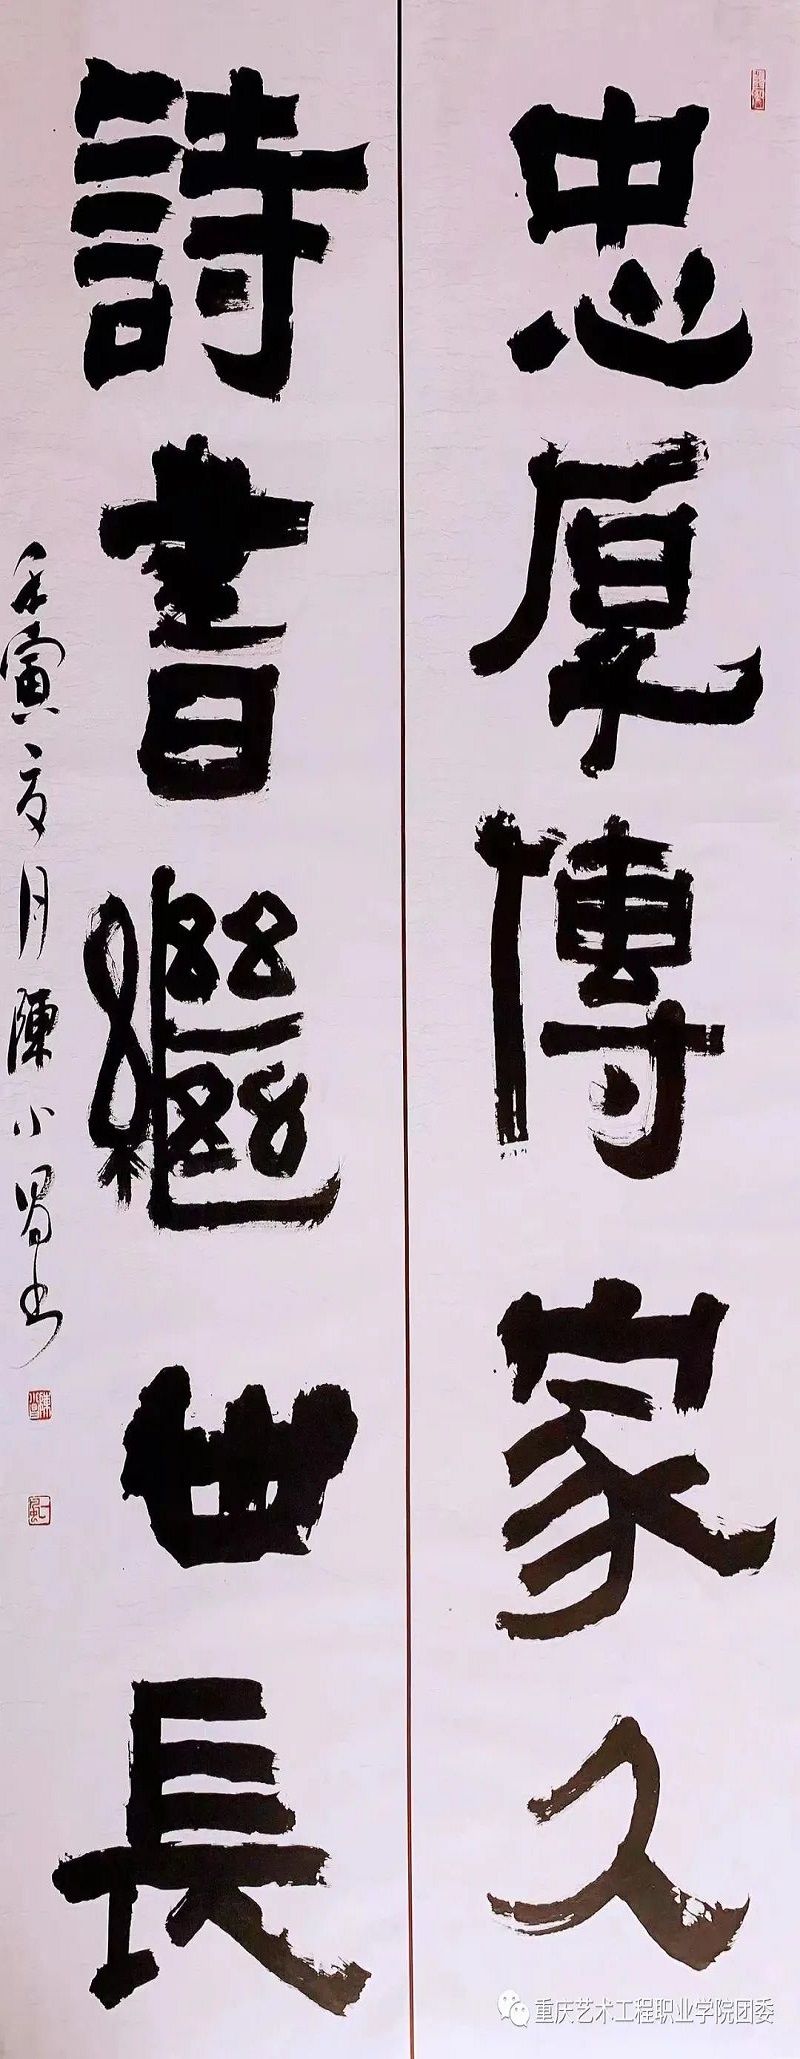 忠厚傳家久
詩書繼世長
壬寅夏月陳小蜀书
重庆艺术工程职业学院团委